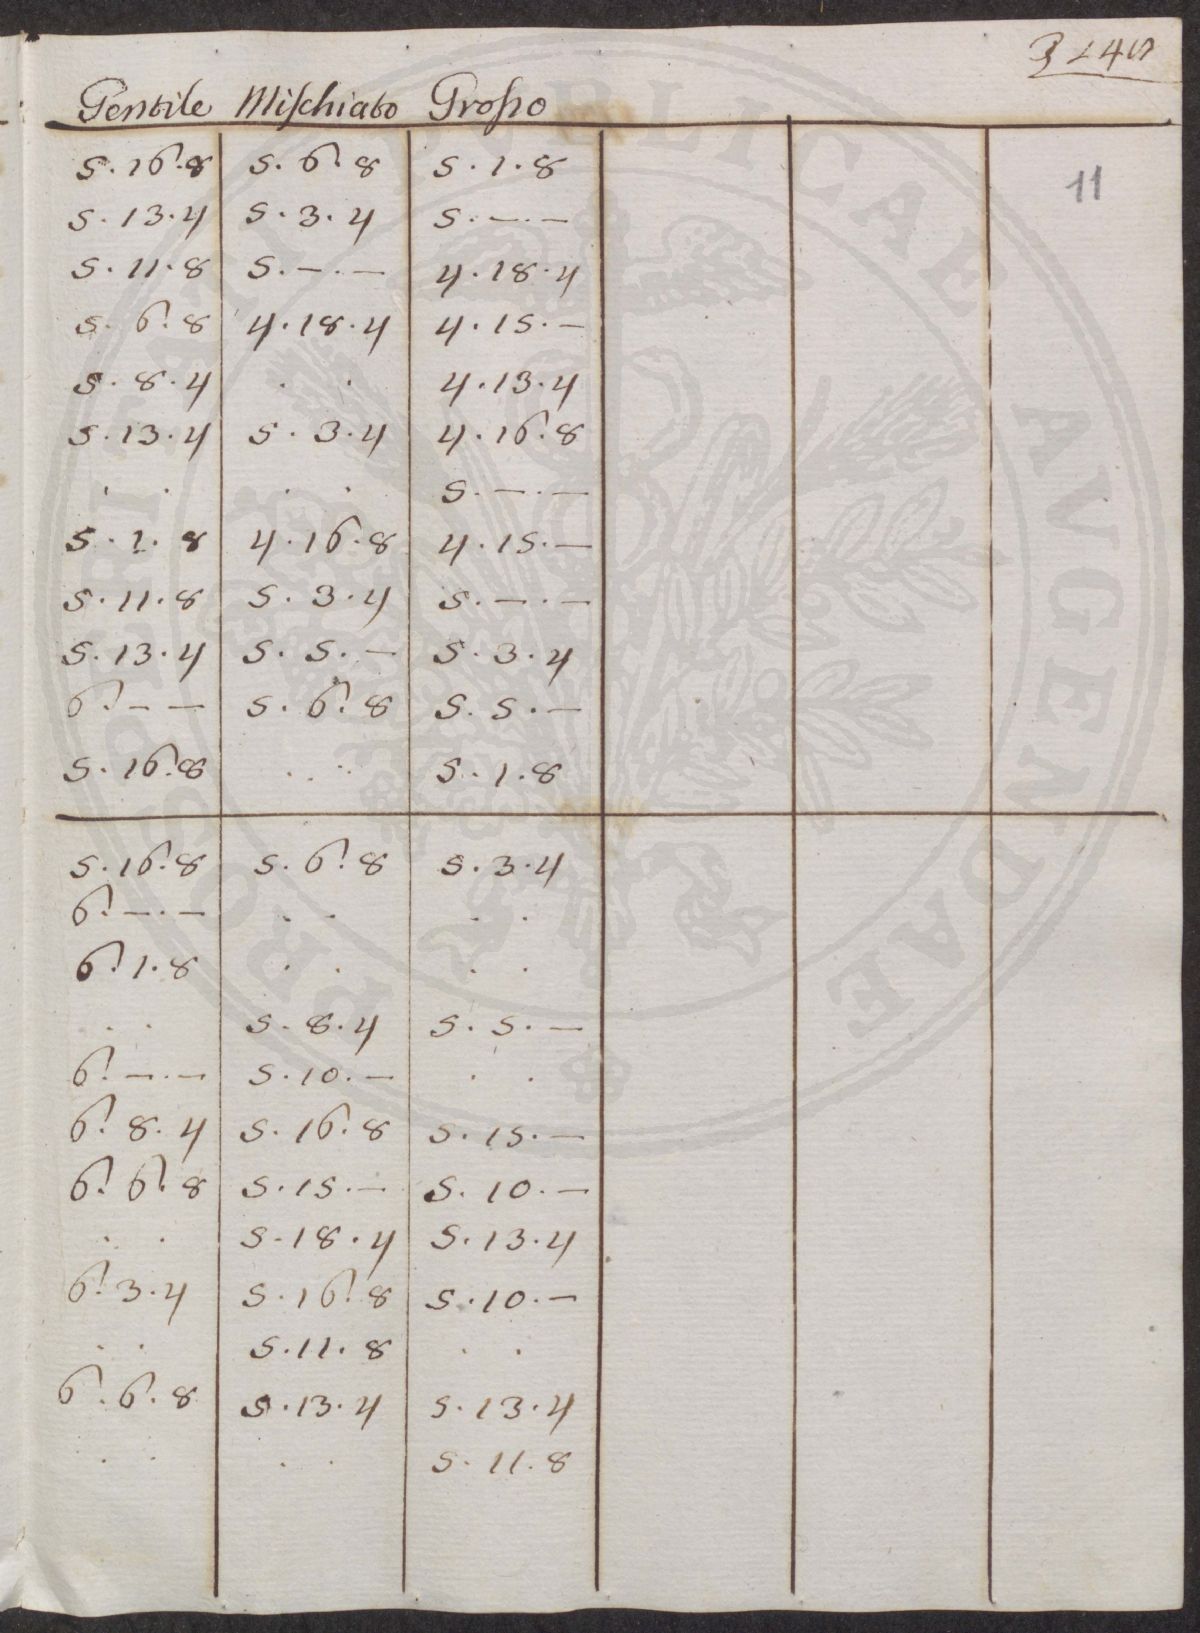 Gentile Mischiato Grosso
11
5.16.8 5.6.8 5.1.8
5.13.4 5.3.4 5.—.—
5.11.8 5.—.— 4.18.4
5.6.8 4.18.4 4.15.—
5.8.4 . . 4.13.4
5.13.4 5.3.4 4.16.8
. . . . 5.—.—
5.1.8 4.16.8 4.15.—
5.11.8 5.3.4 5.—.—
5.13.4 5.5.— 5.3.4
6.—— 5.6.8 5.5.—
5.16.8 . . 5.1.8
5.16.8 5.6.8 5.3.4
6.—.— . . . .
6.1.8 . . . .
. . 5.8.4 5.5.—
6.—.— 5.10.— . .
6.8.4 5.16.8 5.15.—
6.6.8 5.15.— 5.10.—
. . 5.18.4 5.13.4
6.3.4 5.16.8 5.10.—
. . 5.11.8 . .
6.6.8 5.13.4 5.13.4
. . . . 5.11.8